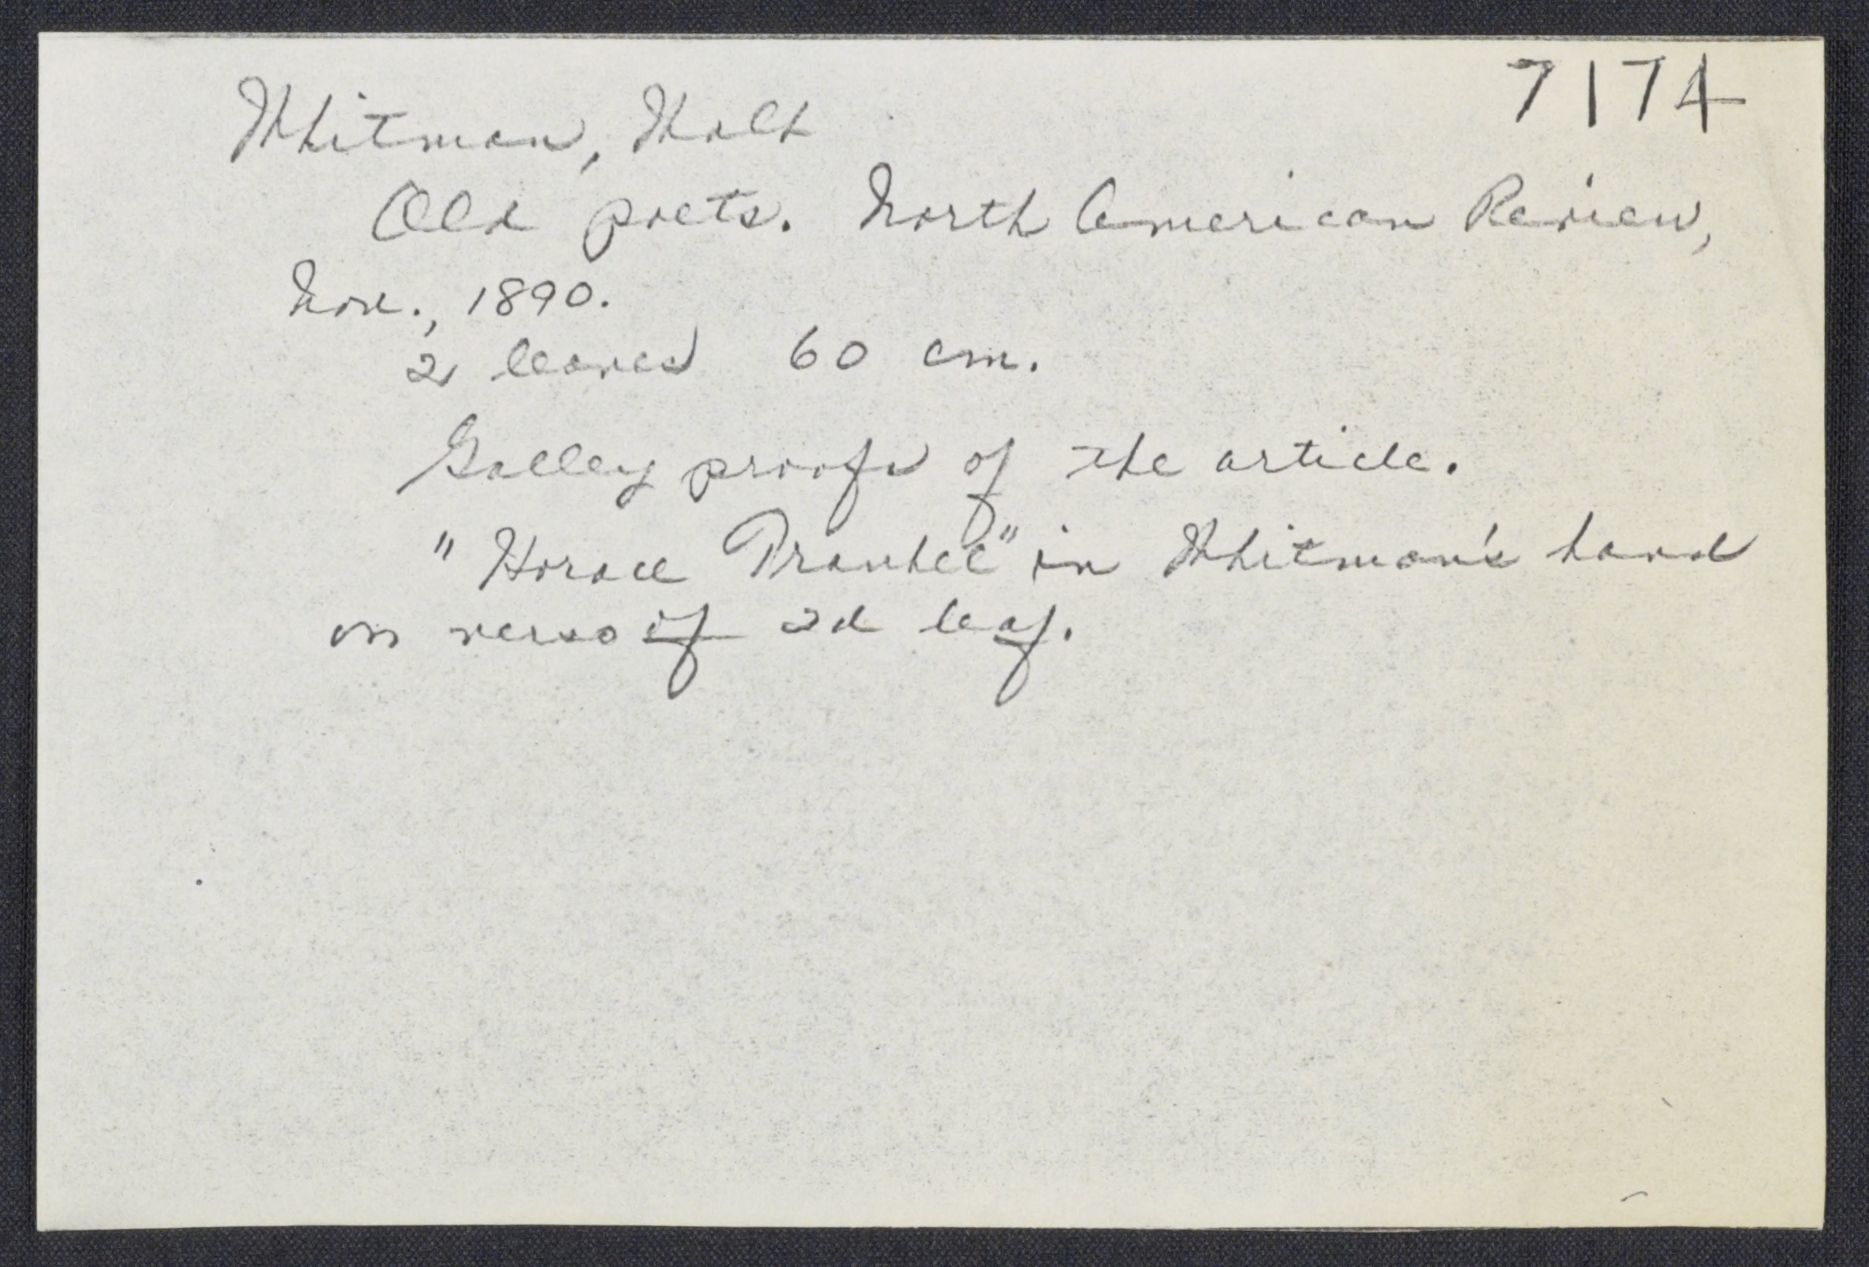 7174
Whitman, Walt
Old poets. North American Review,
Nov., 1890.
2 leaves 60 cm.
Galley proofs of the article.
"Horace Traubel" in Whitman's hand
on verso of 2d leaf.